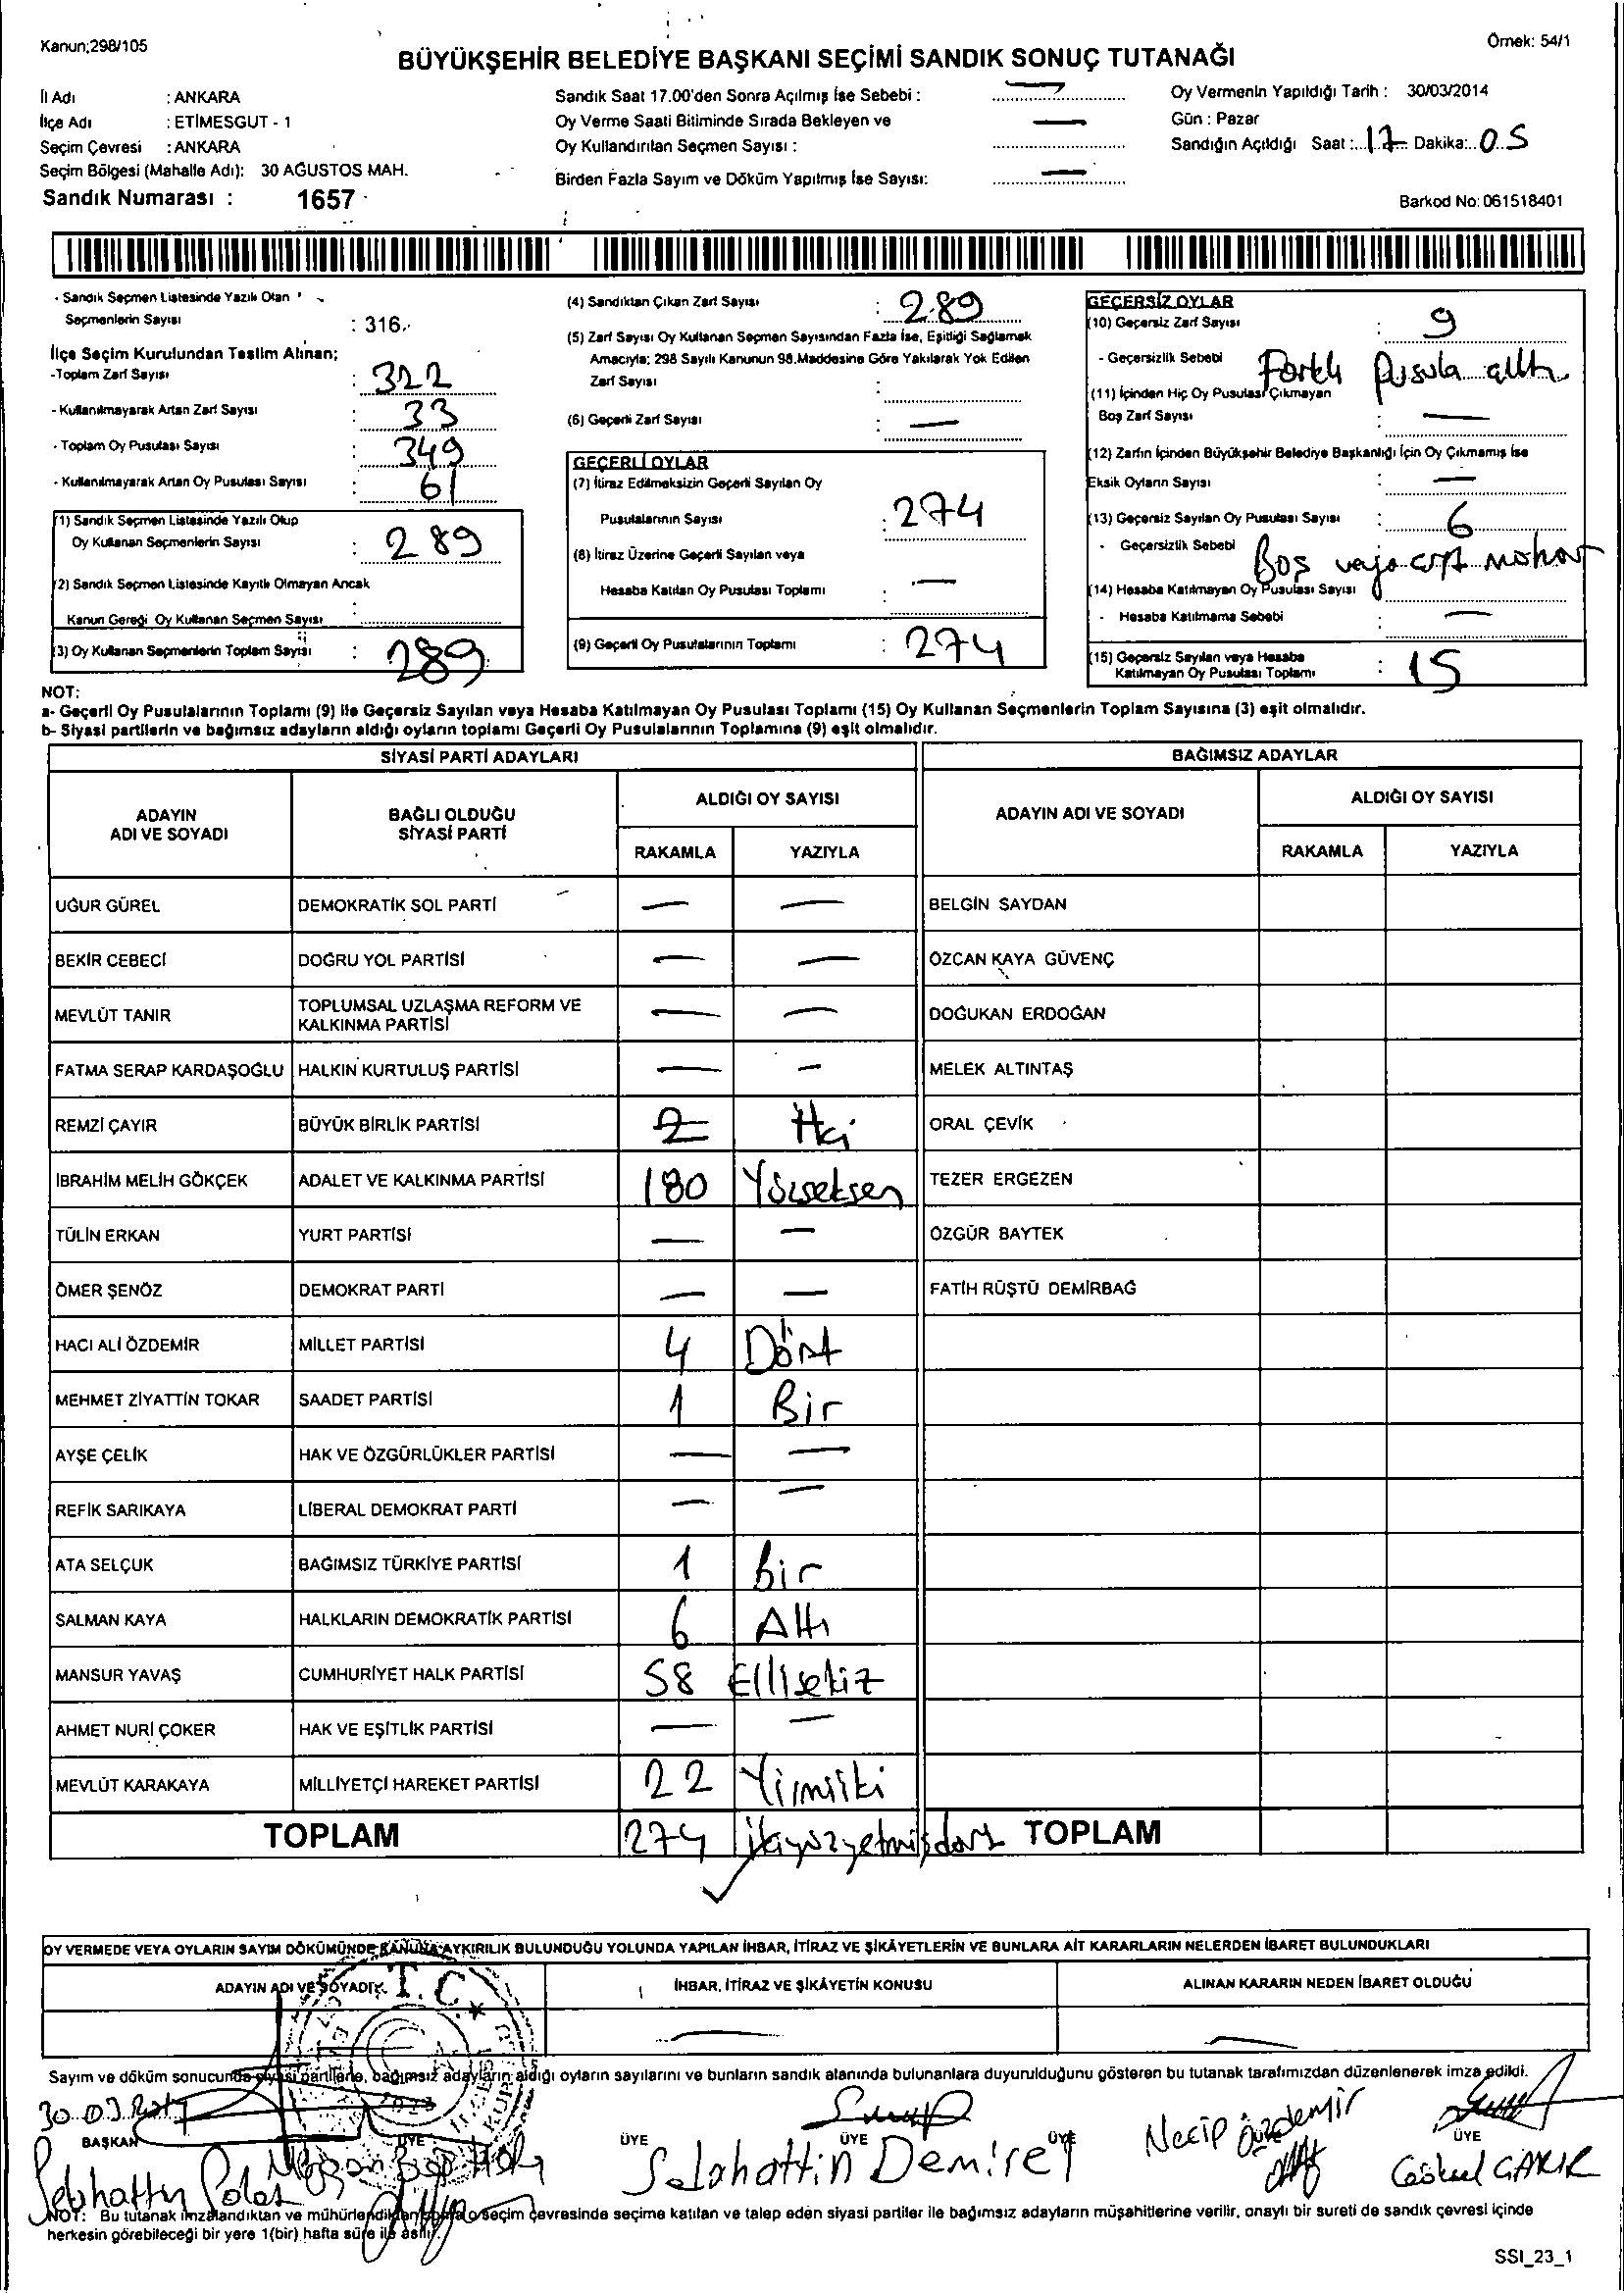 Kanun;298/105
Örnek: 54/1
BÜYÜKŞEHİR BELEDİYE BAŞKANI SEÇİMİ SANDIK SONUÇ TUTANAĞI
İl Adı : ANKARA
İlçe Adı : ETİMESGUT - 1
Seçim Çevresi : ANKARA
Seçim Bölgesi (Mahalle Adı): 30 AĞUSTOS MAH.
Sandık Numarası : 1657
Sandık Saat 17.00'den Sonra Açılmış İse Sebebi :
Oy Verme Saati Bitiminde Sırada Bekleyen ve
Oy Kullandırılan Seçmen Sayısı :
Birden Fazla Sayım ve Döküm Yapılmış İse Sayısı:
Oy Vermenin Yapıldığı Tarih : 30/03/2014
Gün : Pazar
Sandığın Açıldığı Saat : 17 Dakika: 05
Barkod No: 061518401
- Sandık Seçmen Listesinde Yazılı Olan
Seçmenlerin Sayısı : 316
İlçe Seçim Kurulundan Teslim Alınan;
-Toplam Zarf Sayısı : 322
- Kullanılmayarak Artan Zarf Sayısı : 33
- Toplam Oy Pusulası Sayısı : 349
- Kullanılmayarak Artan Oy Pusulası Sayısı : 61
(1) Sandık Seçmen Listesinde Yazılı Olup
Oy Kullanan Seçmenlerin Sayısı : 289
(2) Sandık Seçmen Listesinde Kayıtlı Olmayan Ancak
Kanun Gereği Oy Kullanan Seçmen Sayısı :
(3) Oy Kullanan Seçmenlerin Toplam Sayısı : 289
(4) Sandıktan Çıkan Zarf Sayısı : 289
(5) Zarf Sayısı Oy Kullanan Seçmen Sayısından Fazla İse, Eşitliği Sağlamak
Amacıyla; 298 Sayılı Kanunun 98.Maddesine Göre Yakılarak Yok Edilen
Zarf Sayısı :
(6) Geçerli Zarf Sayısı : —
GEÇERLİ OYLAR
(7) İtiraz Edilmeksizin Geçerli Sayılan Oy
Pusulalarının Sayısı : 274
(8) İtiraz Üzerine Geçerli Sayılan veya
Hesaba Katılan Oy Pusulası Toplamı : —
(9) Geçerli Oy Pusulalarının Toplamı : 274
GEÇERSİZ OYLAR
(10) Geçersiz Zarf Sayısı : 9
- Geçersizlik Sebebi Farklı pusula
(11) İçinden Hiç Oy Pusulası Çıkmayan
Boş Zarf Sayısı : —
(12) Zarfın İçinden Büyükşehir Belediye Başkanlığı İçin Oy Çıkmamış İse
Eksik Oyların Sayısı : —
(13) Geçersiz Sayılan Oy Pusulası Sayısı : 6
- Geçersizlik Sebebi Boş veya çift
(14) Hesaba Katılmayan Oy Pusulası Sayısı
- Hesaba Katılmama Sebebi : —
(15) Geçersiz Sayılan veya Hesaba
Katılmayan Oy Pusulası Toplamı : 15
NOT:
a- Geçerli Oy Pusulalarının Toplamı (9) ile Geçersiz Sayılan veya Hesaba Katılmayan Oy Pusulası Toplamı (15) Oy Kullanan Seçmenlerin Toplam Sayısına (3) eşit olmalıdır.
b- Siyasi partilerin ve bağımsız adayların aldığı oyların toplamı Geçerli Oy Pusulalarının Toplamına (9) eşit olmalıdır.
SİYASİ PARTİ ADAYLARI BAĞIMSIZ ADAYLAR
ADAYIN ADI VE SOYADI BAĞLI OLDUĞU SİYASİ PARTİ ALDIĞI OY SAYISI ADAYIN ADI VE SOYADI ALDIĞI OY SAYISI
RAKAMLA YAZIYLA RAKAMLA YAZIYLA
UĞUR GÜREL DEMOKRATİK SOL PARTİ — — BELGİN SAYDAN
BEKİR CEBECİ DOĞRU YOL PARTİSİ — — ÖZCAN KAYA GÜVENÇ
MEVLÜT TANIR TOPLUMSAL UZLAŞMA REFORM VE KALKINMA PARTİSİ — — DOĞUKAN ERDOĞAN
FATMA SERAP KARDAŞOĞLU HALKIN KURTULUŞ PARTİSİ — — MELEK ALTINTAŞ
REMZİ ÇAYIR BÜYÜK BİRLİK PARTİSİ 2 İki ORAL ÇEVİK
İBRAHİM MELİH GÖKÇEK ADALET VE KALKINMA PARTİSİ 180 Yüzseksen TEZER ERGEZEN
TÜLİN ERKAN YURT PARTİSİ — — ÖZGÜR BAYTEK
ÖMER ŞENÖZ DEMOKRAT PARTİ — — FATİH RÜŞTÜ DEMİRBAĞ
HACI ALİ ÖZDEMİR MİLLET PARTİSİ 4 Dört
MEHMET ZİYATTİN TOKAR SAADET PARTİSİ 1 Bir
AYŞE ÇELİK HAK VE ÖZGÜRLÜKLER PARTİSİ — —
REFİK SARIKAYA LİBERAL DEMOKRAT PARTİ — —
ATA SELÇUK BAĞIMSIZ TÜRKİYE PARTİSİ 1 Bir
SALMAN KAYA HALKLARIN DEMOKRATİK PARTİSİ 6 Altı
MANSUR YAVAŞ CUMHURİYET HALK PARTİSİ 58 Ellisekiz
AHMET NURİ ÇOKER HAK VE EŞİTLİK PARTİSİ — —
MEVLÜT KARAKAYA MİLLİYETÇİ HAREKET PARTİSİ 22 Yirmiiki
TOPLAM 274 ikiyüzyetmişdört TOPLAM
OY VERMEDE VEYA OYLARIN SAYIM DÖKÜMÜNDE KANUNA AYKIRILIK BULUNDUĞU YOLUNDA YAPILAN İHBAR, İTİRAZ VE ŞİKÂYETLERİN VE BUNLARA AİT KARARLARIN NELERDEN İBARET BULUNDUKLARI
ADAYIN ADI VE SOYADI İHBAR, İTİRAZ VE ŞİKÂYETİN KONUSU ALINAN KARARIN NEDEN İBARET OLDUĞU
T.C.
Sayım ve döküm sonucunda siyasi partilerle, bağımsız adayların aldığı oyların sayılarını ve bunların sandık alanında bulunanlara duyurulduğunu gösteren bu tutanak tarafımızdan düzenlenerek imza edildi.
30.03.2014
BAŞKAN ÜYE ÜYE ÜYE ÜYE ÜYE
Sebhattin Polat Selahattin Demirel Necip Özdemir Göksel ÇAKIR
NOT: Bu tutanak imzalandıktan ve mühürlendikten sonra o seçim çevresinde seçime katılan ve talep eden siyasi partiler ile bağımsız adayların müşahitlerine verilir, onaylı bir sureti de sandık çevresi içinde
herkesin görebileceği bir yere 1(bir) hafta süre ile asılır.
SSI_23_1